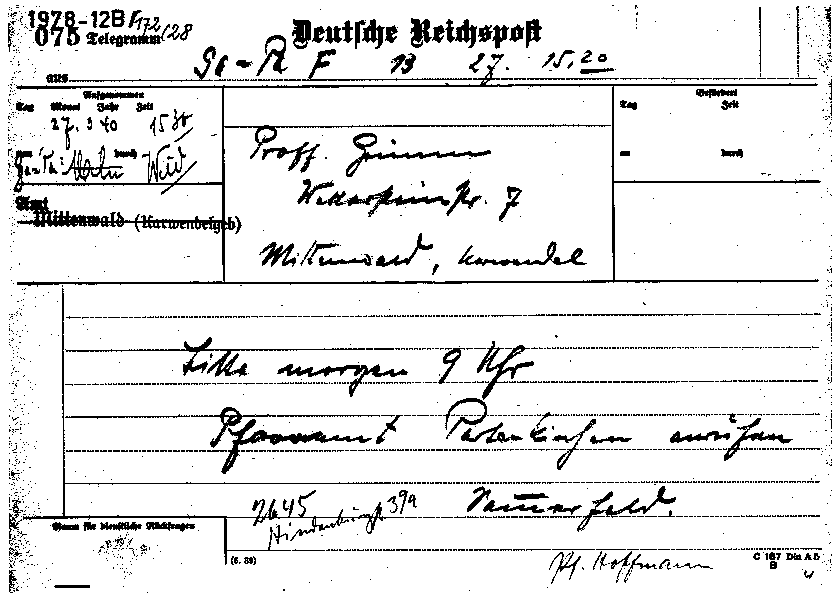 1978-12B/172/28
075 Telegramm
Deutsche Reichspost
Ga-Pa F 13 27. 15.20
aus
Aufgenommen
Tag Monat Jahr Zeit
27. 3 40 1530
durch
Amt
Mittenwald (Karwendelgeb)
Proff.
7
Mittenwald, Karwendel
Befördert
Tag Zeit
an durch
Bitte morgen 9 Uhr
Pfarramt Partenkirchen anrufen
Sommerfeld.
2645
Hindenburgstr. 39a
Pf. Hoffmann
Raum für dienstliche Rückfragen
(6. 39)
C 187 Din A 5
B